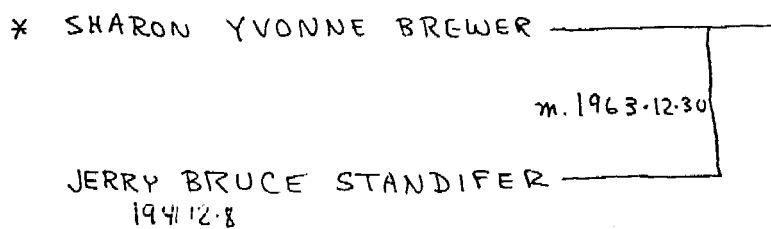 * SHARON YVONNE BREWER
m. 1963·12·30
JERRY BRUCE STANDIFER
1941 12·8